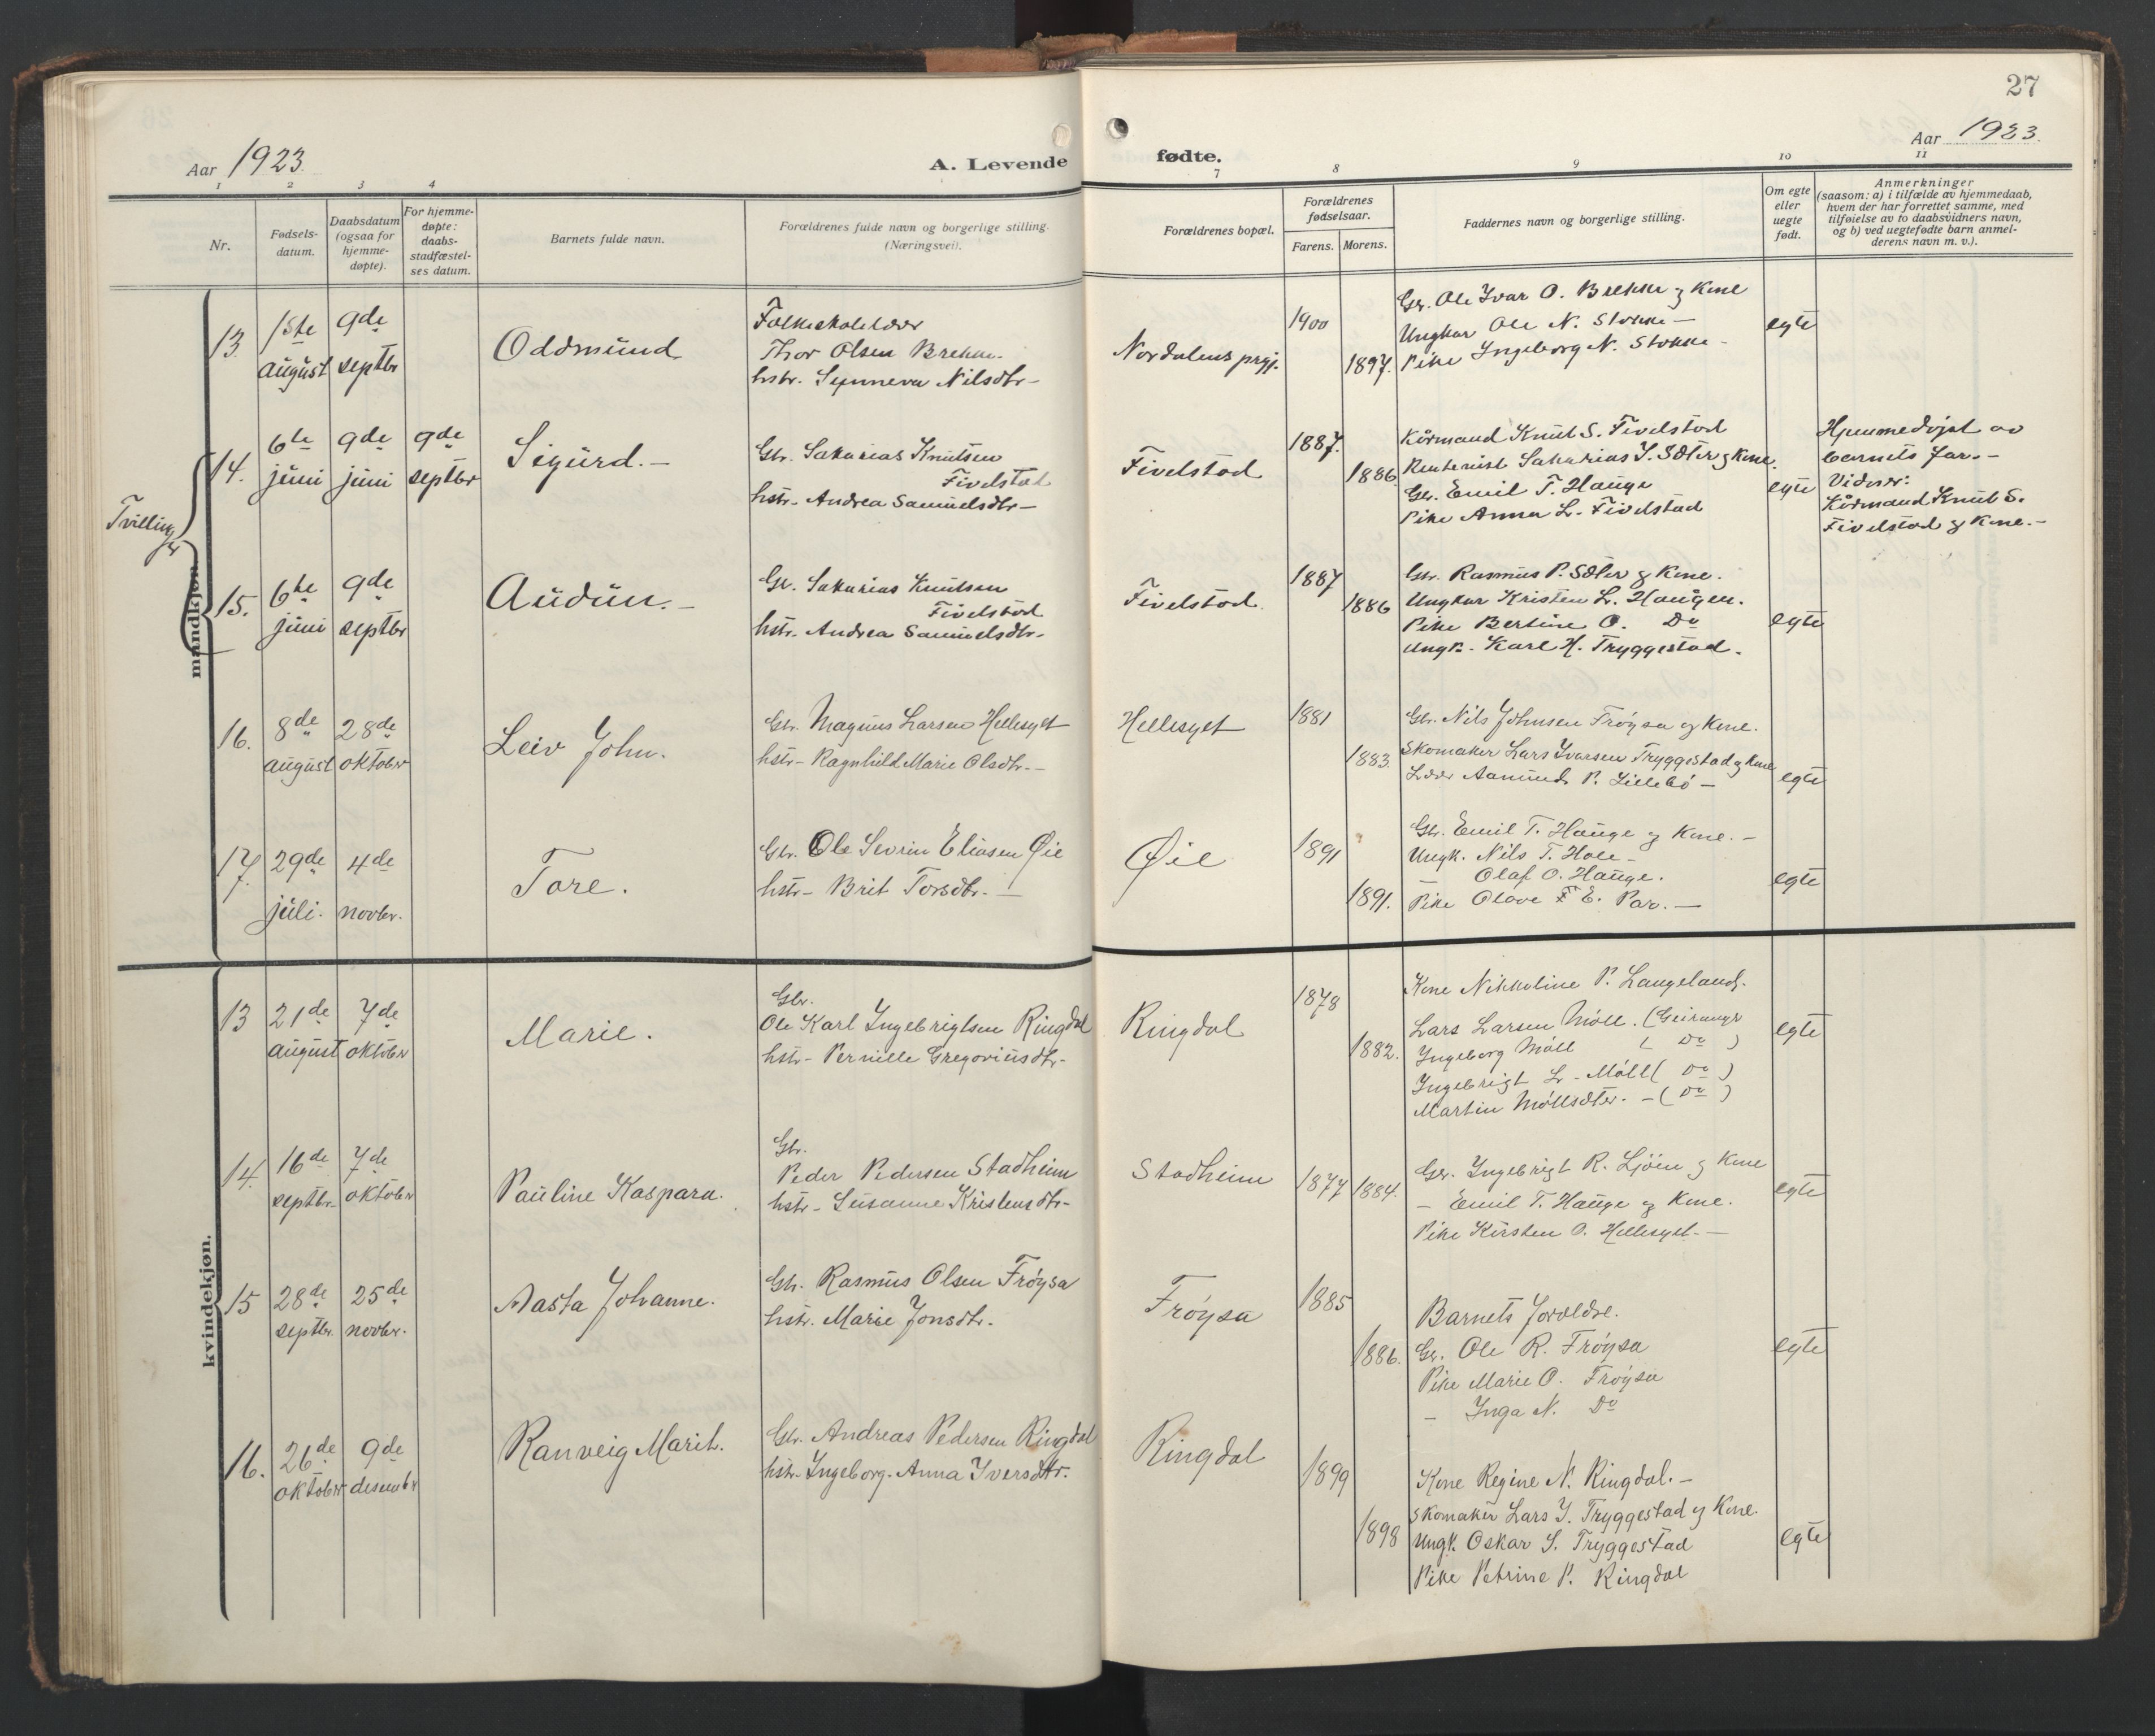 27
Aar 1923.
A. Levende
fødte.
Aar 1923.
1 2 3 4 7 8 9 10 11
Nr.
Fødsels-
datum.
Daabsdatum
(ogsaa for
hjemme-
døpte).
For hjemme-
døpte:
daabs-
stadfæstel-
ses datum.
Barnets fulde navn.
Forældrenes fulde navn og borgerlige stilling.
(Næringsvei).
Forældrenes bopæl.
Forældrenes
fødselsaar.
Farens. Morens.
Faddernes navn og borgerlige stilling.
Om egte
eller
uegte
født.
Anmerkninger
(saasom: a) i tilfælde av hjemmedaab,
hvem der har forrettet samme, med
tilføielse av to daabsvidners navn,
og b) ved uegtefødte barn anmel-
derens navn m. v.).
mandkjøn.
13. 1ste august
9de septbr
Oddmund
Folkeskolelærer
Thor Olsen Brekke.
hstr. Synneva Nilsdtr-
Nordalens prgj.
1900
1897.
Gbr. Ole Ivar O. Brekke og Kone
Ungkar Ole N. Stokke -
Pike Ingeborg N. Stokke -
egte
Tvillinger
14. 6te juni
9de juni
9de septbr
Sigurd. -
Gbr. Sakarias Knutsen
Fivelstad
hstr- Andrea Samuelsdtr-
Fivelstad
1887.
1886.
Kårmand Knut S. Fivelstad
Rentenist Sakarias I. Sæter og Kone.
Gbr. Emil T. Hauge
Pike Anna L. Fivelstad
egte
Hjemmedøpt av
barnets far. -
Vidner:
Kårmand Knut S.
Fivelstad og Kone. -
15. 6te juni
9de septbr
Audun. -
Gbr. Sakarias Knutsen
Fivelstad
hstr. Andrea Samuelsdtr-
Fivelstad.
1887
1886
Gbr. Rasmus P. Sæter og Kone.
Ungkar Kristen L. Haugen.
Pike Bertine O. Do
Ungk. Karl H. Tryggestad.
egte
16. 8de august
28de oktober
Leiv John.
Gbr. Magnus Larsen Hellesylt
hstr- Ragnhild Marie Olsdtr. -
Hellesylt
1881
1883.
Gbr. Nils Johnsen Frøysa og Kone.
Skomaker Lars Ivarsen Tryggestad og Kone
Lærer Aamund P. Lillebø -
egte
17. 29de juli.
4de novbr.
Tore.
Gbr. Ole Sevrin Eliasen Øie
hstr- Brit Torsdtr. -
Øie
1891
1891.
Gbr. Emil T. Hauge og Kone. -
Ungk. Nils T. Hole -
Olaf O. Hauge.
Pike Olave E. Par. -
egte
kvindekjøn.
13 21de august
7de oktober
Marie.
Gbr.
Ole Karl Ingebrigtsen Ringdal
hstr- Pernille Gregoriusdtr-
Ringdal
1878
1882.
Kone Nikoline P. Langeland.
Lars Larsen Møll. (Geiranger
Ingeborg Møll ( Do )
Ingebrigt L. Møll ( Do )
Martin Møllsæter. - ( Do )
egte
14. 16de septbr.
7de oktober
Pauline Kaspara.
Gbr.
Peder Pedersen Stadheim
hstr- Susanne Kristensdtr-
Stadheim
1877 1884.
Gbr. Ingebrigt R. Ljøen og Kone
- Emil T. Hauge og Kone.
Pike Kirsten O. Hellesylt. -
egte
15 28de septbr.
25de novbr.
Aasta Johanne.
Gbr. Rasmus Olsen Frøysa
hstr. Marie Jonsdtr.
Frøysa
1885
1886.
Barnets forældre.
Gbr. Ole R. Frøysa
Pike Marie O. Frøysa
- Inga N. Do
egte
16. 26de oktober
9de desember
Ranveig Marit.
Gbr. Andreas Pedersen Ringdal
hstr- Ingeborg Anna Iversdtr.
Ringdal
1899
1898
Kone Regine N. Ringdal. -
Skomaker Lars I. Tryggestad og Kone.
Ungk. Oskar S. Tryggestad
Pike Petrine P. Ringdal
egte